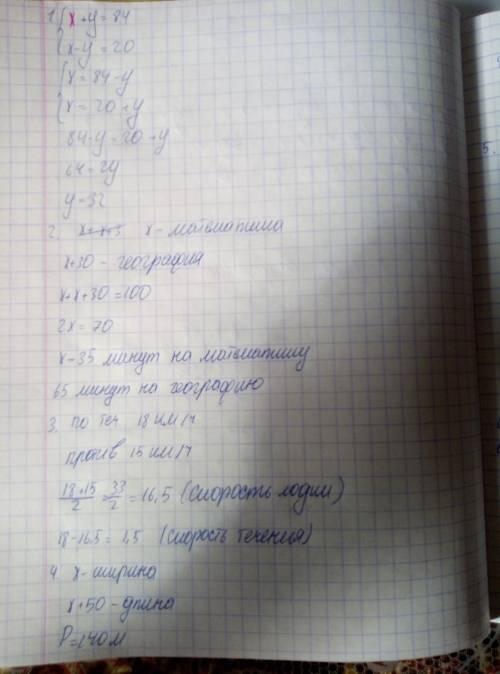 1. { x + y = 84
{ x-y = 20
{ x = 84-y
{ x = 20+y
84-y = 20+y
64 = 2y
y = 32
2. x - математика
x+30 - география
x+x+30=100
2x = 70
x-35 минут на математику
65 минут на географию
3. по теч. 18 км/ч
против 15 км/ч
18+15/2 = 33/2 = 16,5 (скорость лодки)
18-16,5 = 1,5 (скорость течения)
4. x-ширина
x+50-длина
P=140м
5.